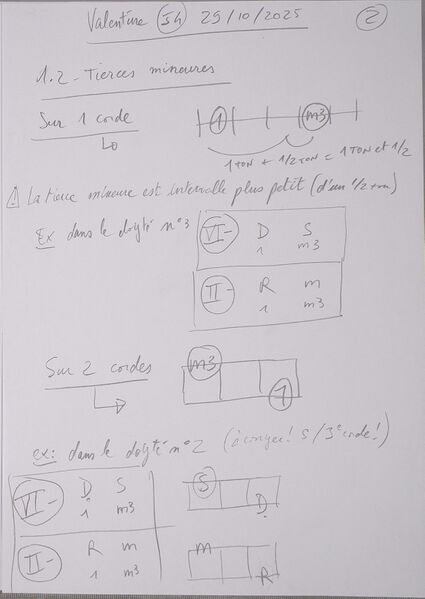 Valentine S4 29/10/2025
2
1.2 - Tierces mineures
Sur 1 corde
1 m3
1 TON + 1/2 TON = 1 TON et 1/2
⚠ La tierce mineure est intervalle plus petit (d'un 1/2 ton)
Ex dans le doigté n°3
VI- D S
1 m3
II- R m
1 m3
Sur 2 cordes
m3
1
ex: dans le doigté n°2 (! S/3e corde!)
VI- Ḍ S
1 m3
S
Ḍ
II- R m
1 m3
m
R